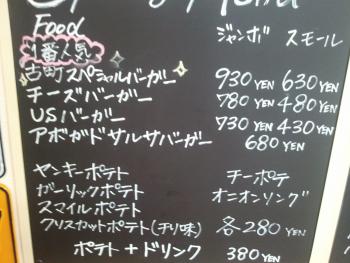 Food
1番人気 ジャンボ スモール
古町スペシャルバーガー 930YEN 630YEN
チーズバーガー 780YEN 480YEN
USバーガー 730YEN 430YEN
アボガドサルサバーガー 680YEN
ヤンキーポテト チーポテ
ガーリックポテト オニオンリング
スマイルポテト
クリスカットポテト(チリ味) 各280YEN
ポテト+ドリンク 380YEN